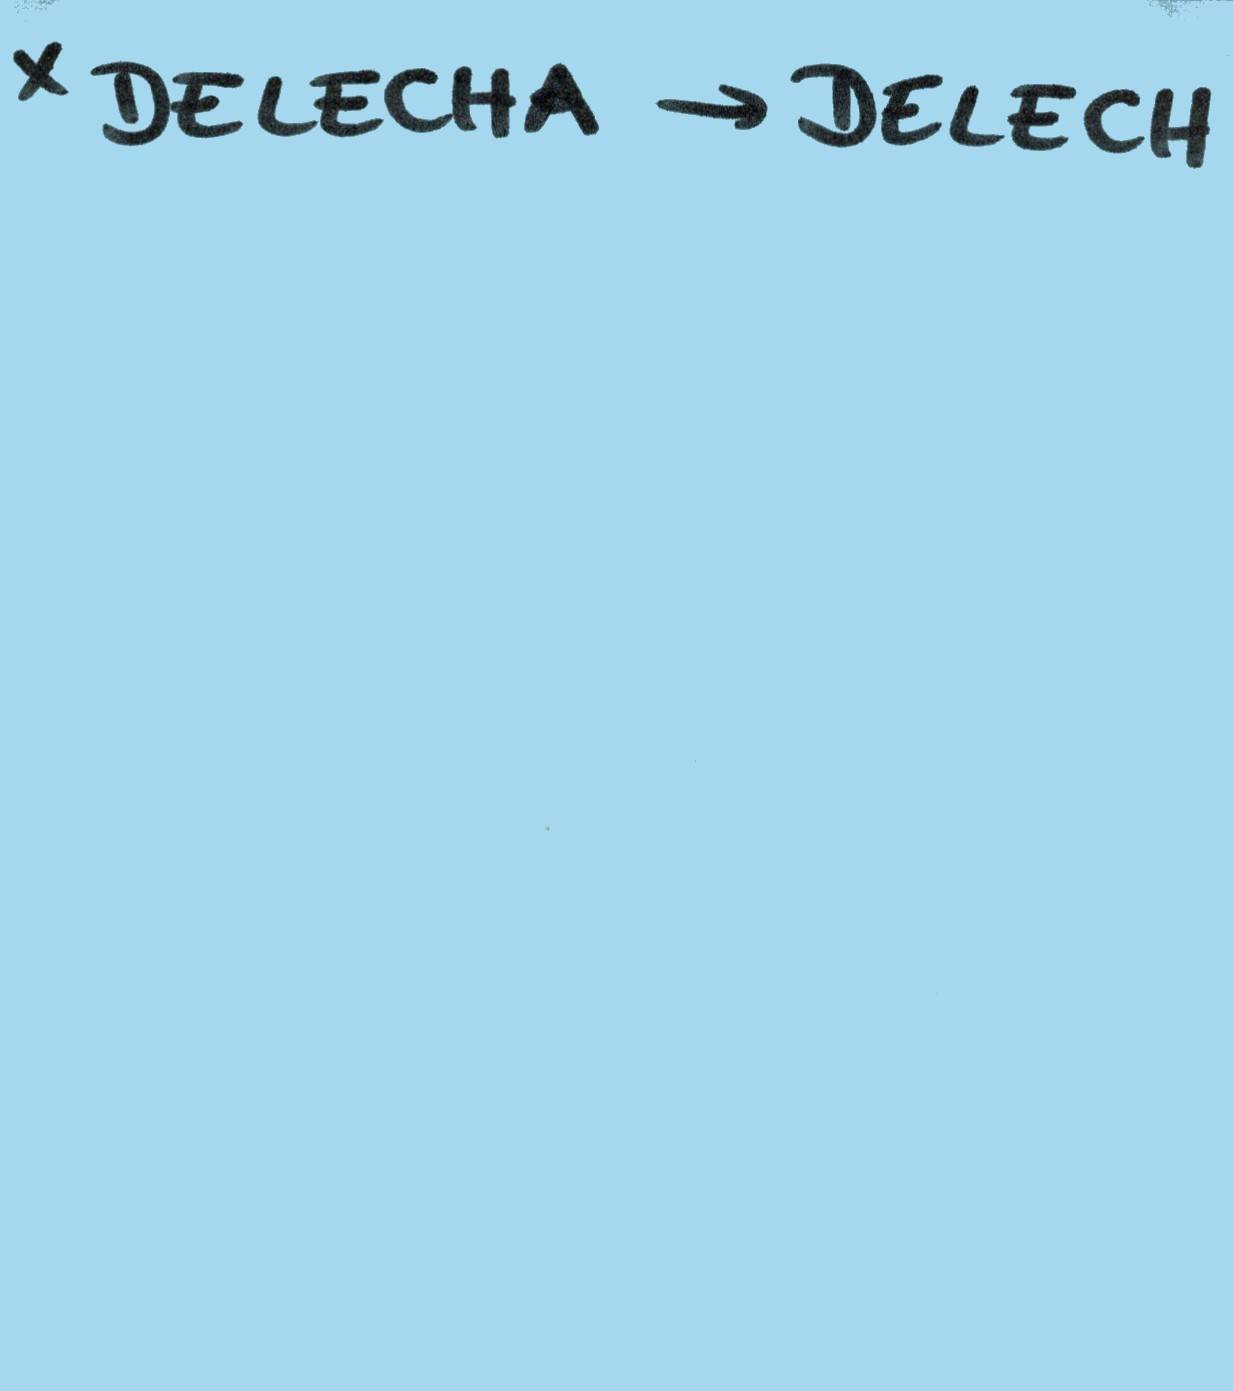 x DELECHA → DELECH